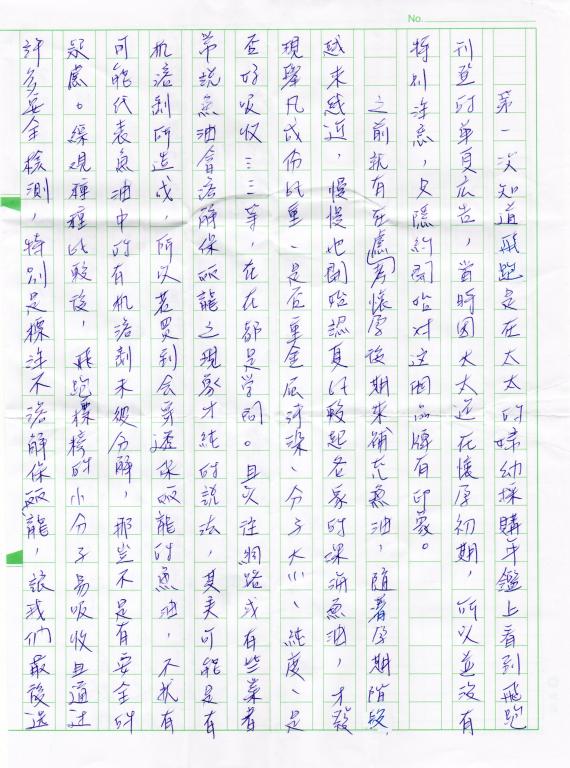 No.
第一次知道飛跑是在太太的婦幼採購年鑑上看到飛跑
刊登的單頁広告，當時因太太還在懷孕初期，所以並沒有
特別注意，只隱約開始对这個品牌有印象。
之前就有在慮考懷孕後期來補充魚油，隨著孕期階段
越來越近，慢慢也開始認真比較起各家的深海魚油，才發
現舉凡成份比重、是否重金屬污染、分子大小、純度、是
否好吸收……等，在在都是学問。且以往網路或有些業者
常說魚油會溶解保麗龍之現象才純的說法，其实可能是有
机溶剤所造成，所以若買到会穿透保麗龍的魚油，不就有
可能代表魚油中的有机溶剤未被分解，那豈不是有安全的
疑慮。綜观種種比較後，飛跑標榜的小分子易吸收且通过
許多安全檢測，特別是標注不溶解保麗龍，讓我们最後选